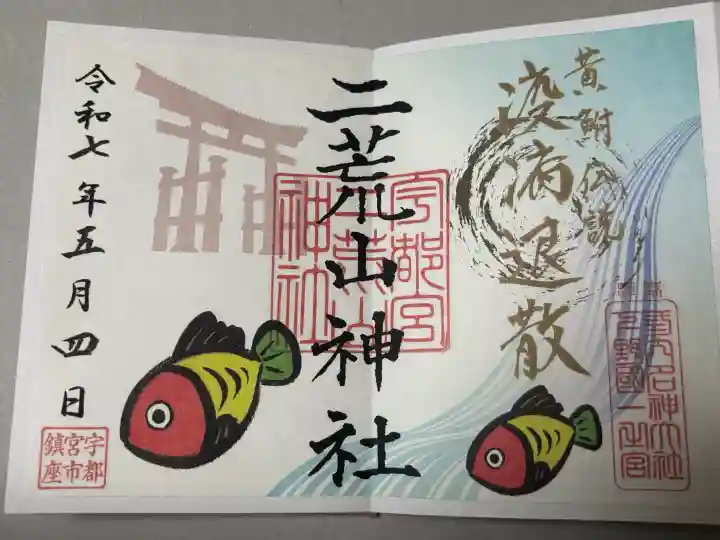 黄鮒伝説
疫病退散
名神大社
下野國一之宮
二荒山神社
宇都宮
二荒山
神社
令和七年五月四日
宇都
宮市
鎮座